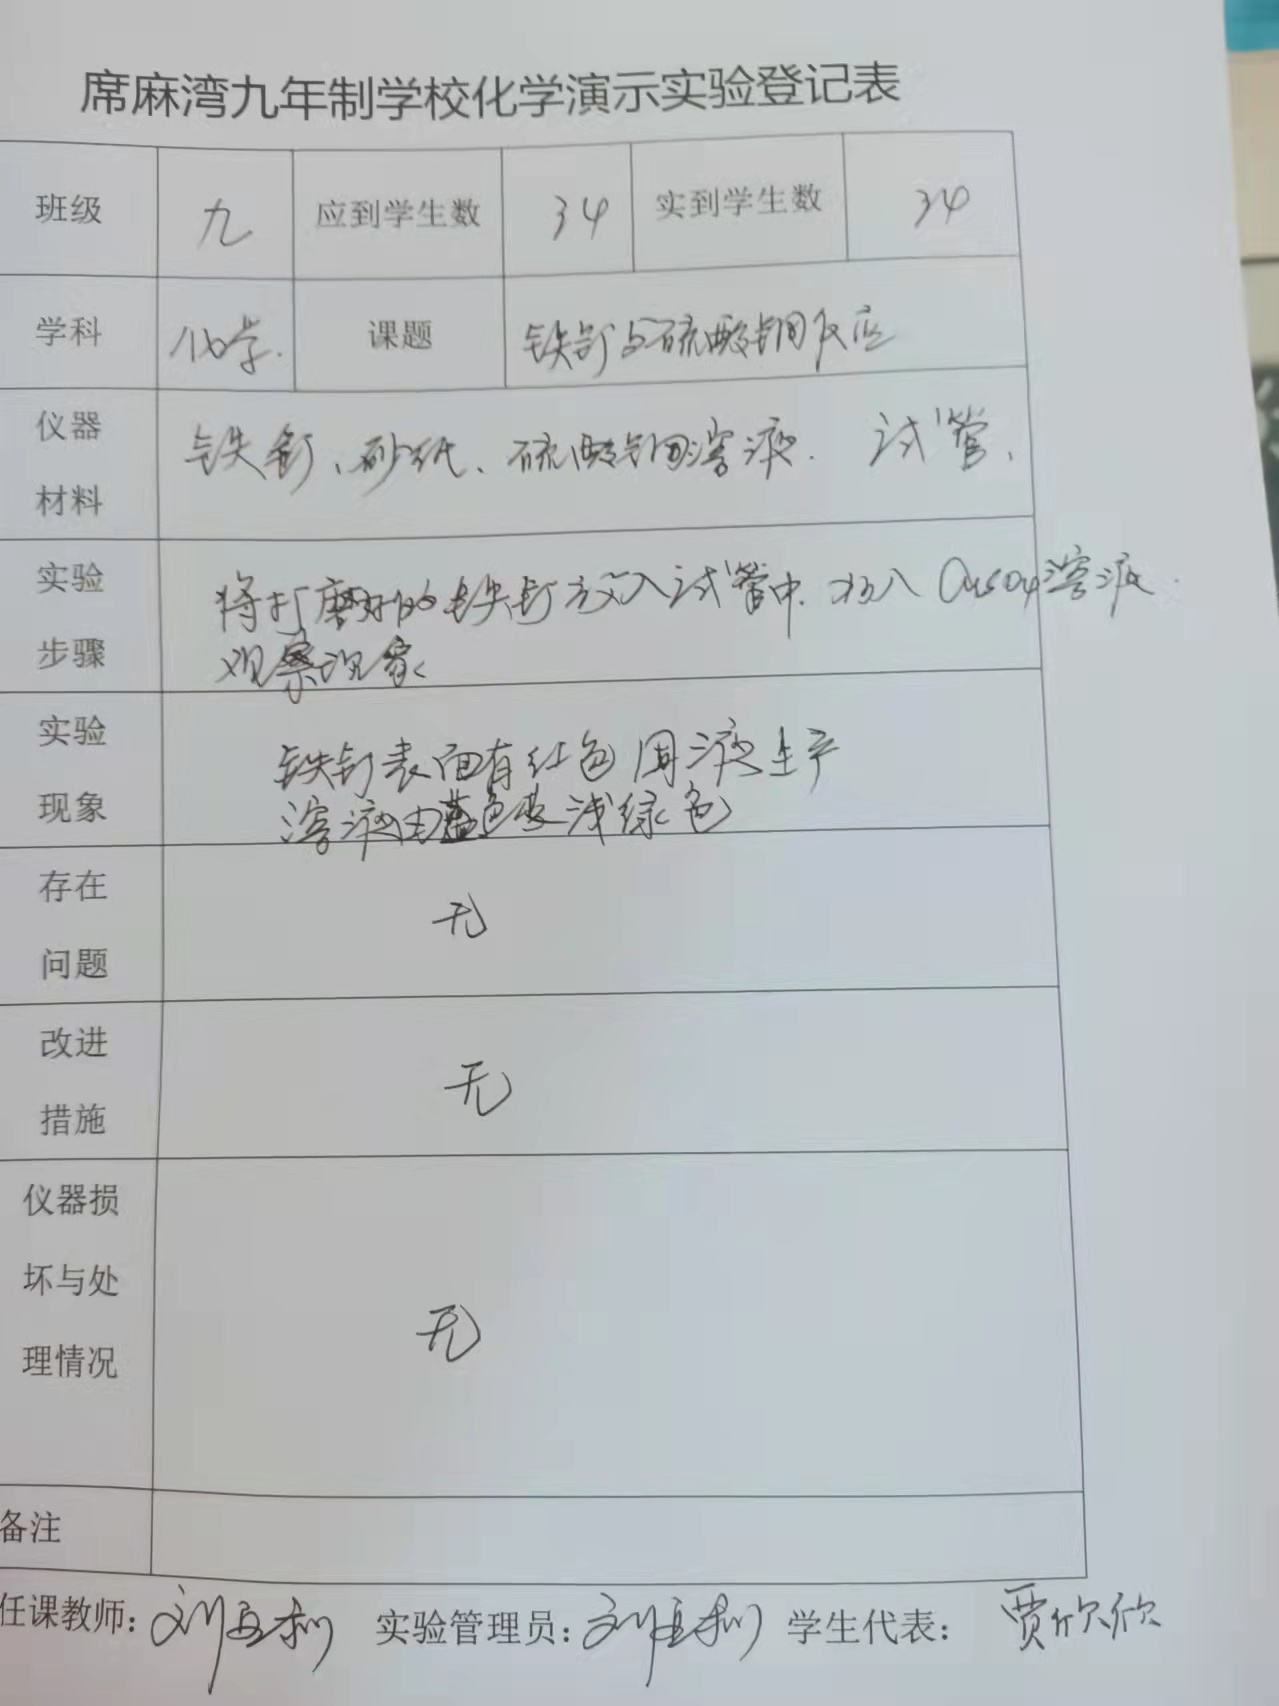 席麻湾九年制学校化学演示实验登记表
班级 九 应到学生数 34 实到学生数 34
学科 化学. 课题 铁钉与硫酸铜反应
仪器
材料
铁钉、砂纸、硫酸铜溶液. 试管、
实验
步骤
将打磨好的铁钉放入试管中. 加入CuSO4溶液.
观察现象
实验
现象
铁钉表面有红色固液生产
溶液由蓝色变浅绿色
存在
问题
无
改进
措施
无
仪器损
坏与处
理情况
无
备注
任课教师: 刘 实验管理员: 刘 学生代表: 贾欣欣